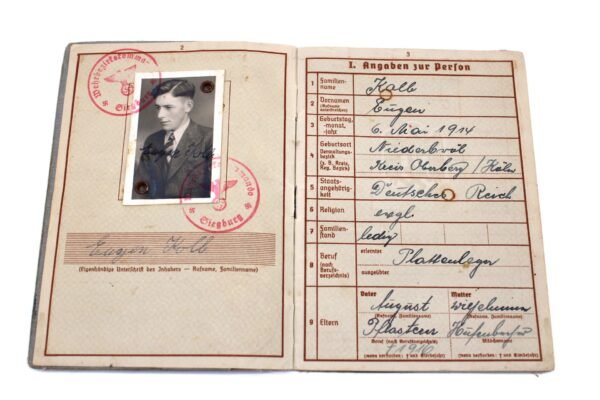 2
Wehrbezirkskomma
Siegburg
Siegburg
Eugen Kolb
(Eigenhändige Unterschrift des Inhabers — Rufname, Familienname)
3
I. Angaben zur Person
1 Familien-
name
Kolb
2 Vornamen
(Rufname
unterstreichen)
Eugen
3 Geburtstag,
-monat,
-jahr
6. Mai 1914
4 Geburtsort
Verwaltungs-
bezirk
(z. B. Kreis,
Reg. Bezirk)
Kreis Oberberg / Köln
5 Staats-
angehörig-
keit
Deutsches Reich
6 Religion
evgl.
7 Familien-
stand
ledig
8 Beruf
(nach
Berufs-
verzeichnis)
erlernter
Plattenleger
ausgeübter
9 Eltern
Vater
August
(Rufname, Familienname)
Beruf (nach Berufsverzeichnis)
† 1916
(wenn verstorben: † und Sterbejahr)
Mutter
(Rufname, Familienname)
Mädchenname
(wenn verstorben: † und Sterbejahr)